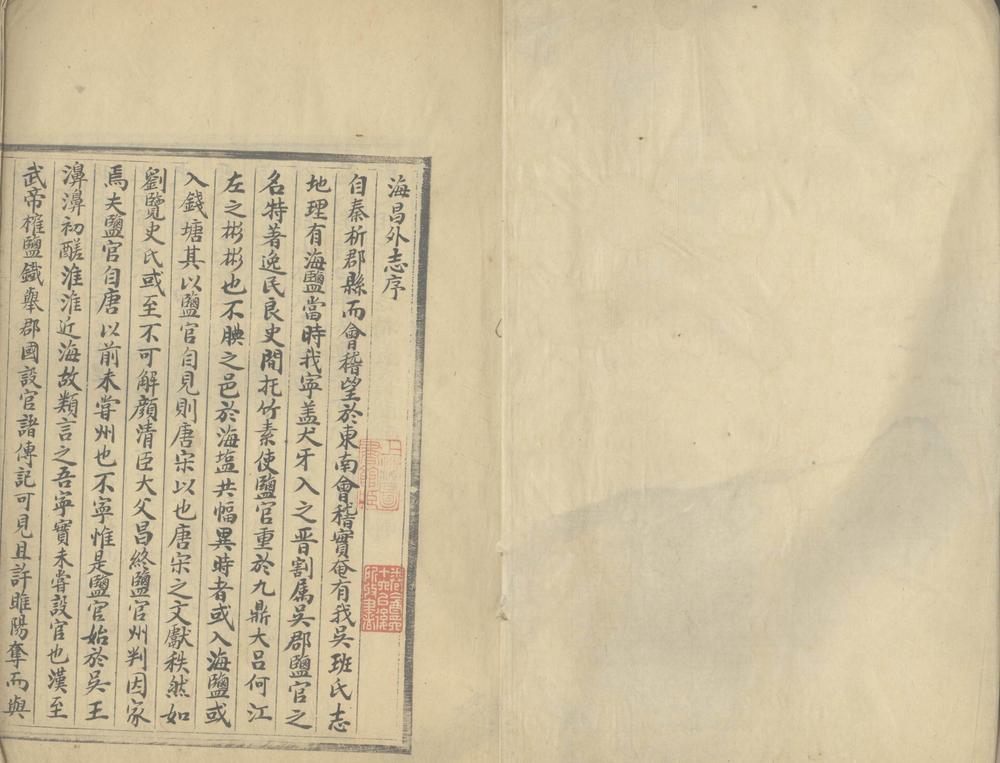 海昌外志序
自秦析郡縣而會稽望於東南會稽實奄有我吳班氏志
地理有海鹽當時我寧盖犬牙入之晉割属吳郡鹽官之
名特著逸民良史間托竹素使鹽官重於九鼎大吕何江
左之彬彬也不腆之邑於海塩共幅異時者或入海鹽或
入錢塘其以鹽官自見則唐宋以也唐宋之文獻秩然如
劉覽史氏或至不可解顔清臣大父昌終鹽官州判因家
焉夫鹽官自唐以前未嘗州也不寧惟是鹽官始於吳王
濞濞初醝淮淮近海故類言之吾寧實未嘗設官也漢至
武帝榷鹽鐵舉郡國設官諸傳記可見且許雎陽奪而與